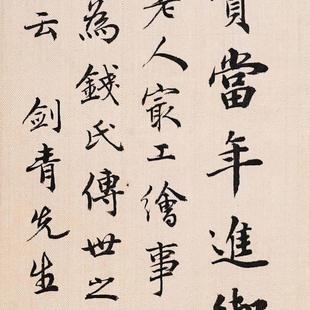 當年進御
老人㝡工繪事
為錢氏傳世之
云 劍青先生